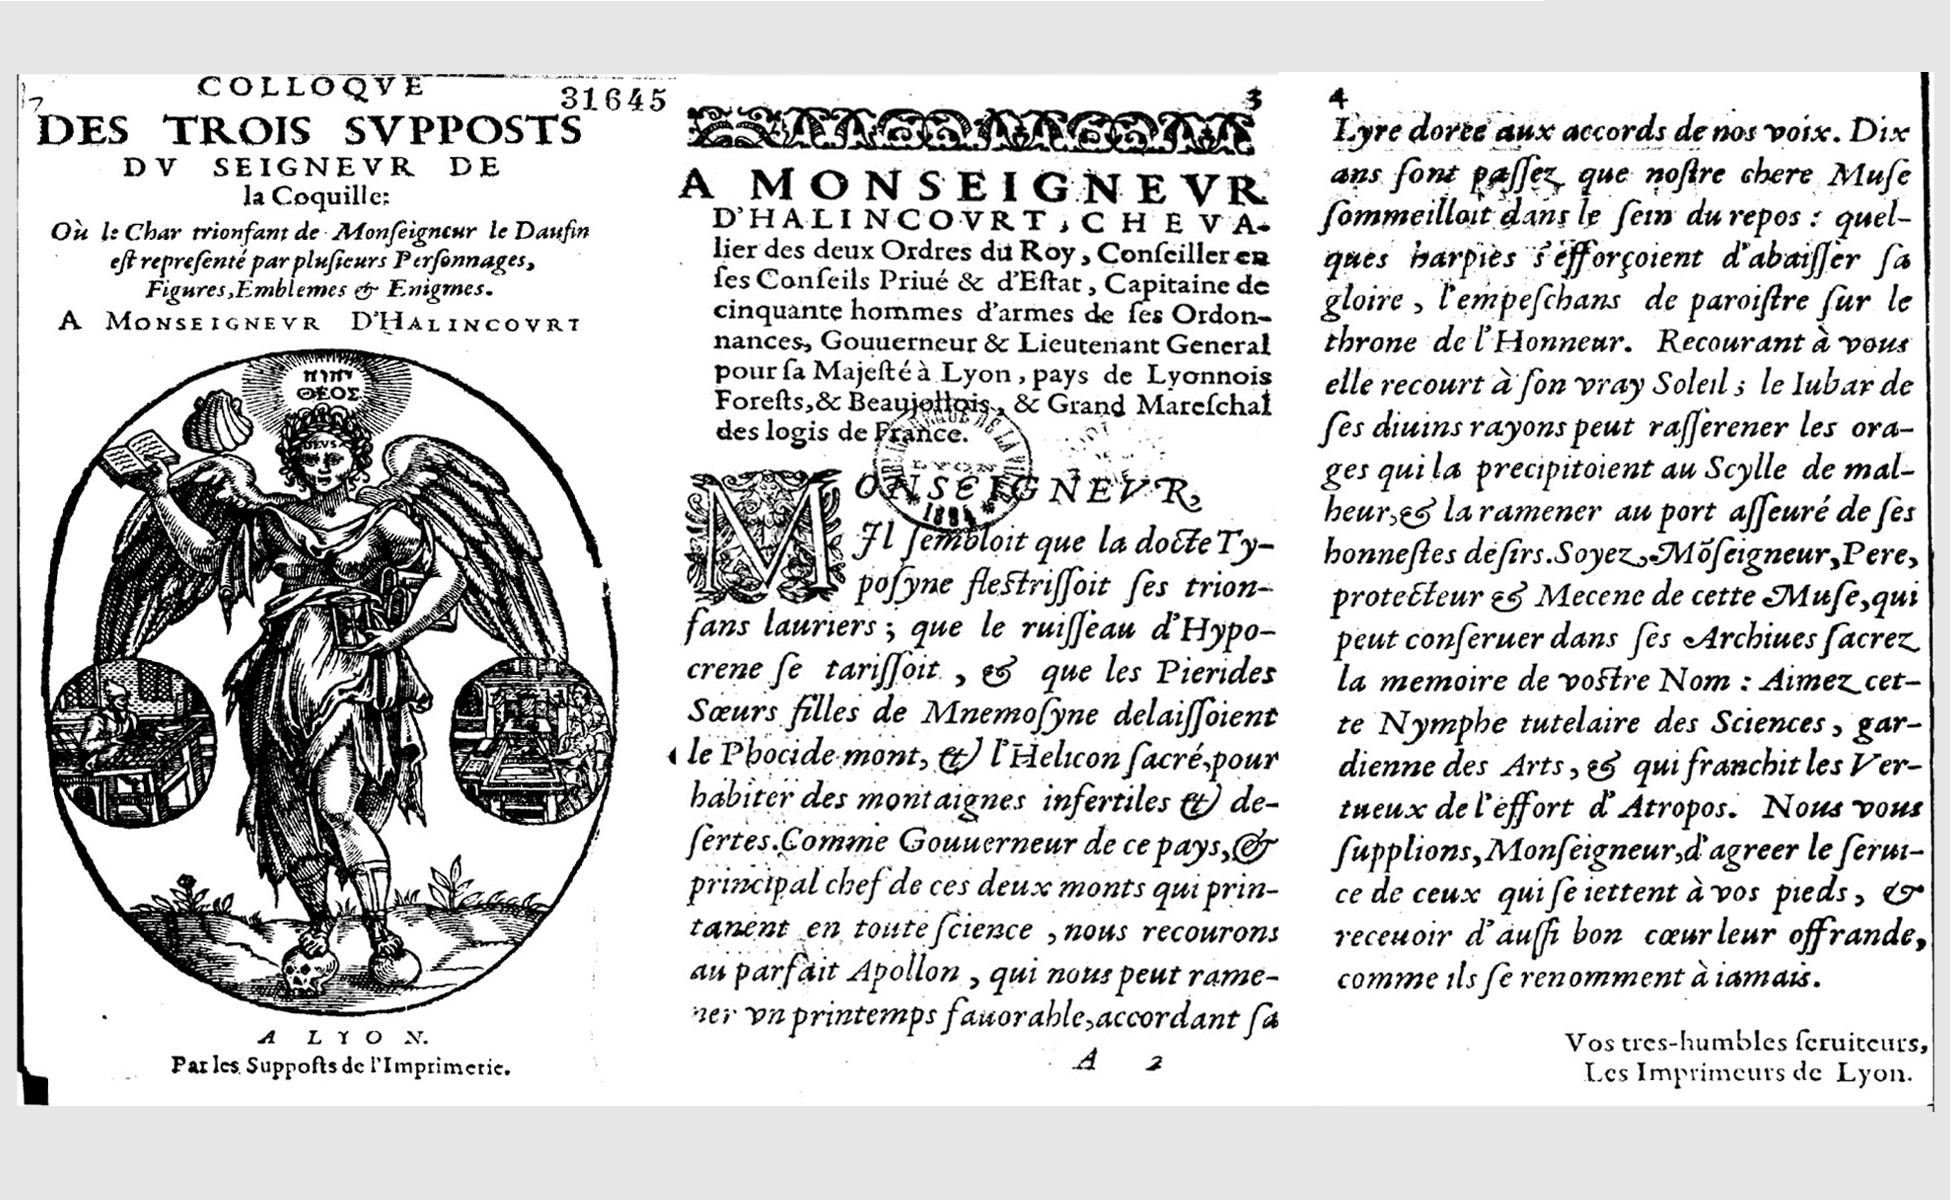 COLLOQVE
31645
DES TROIS SVPPOSTS
DV SEIGNEVR DE
la Coquille:
Où le Char trionfant de Monſeigneur le Daufin
eſt repreſenté par pluſieurs Perſonnages,
Figures, Emblemes & Enigmes.
A MONSEIGNEVR D'HALINCOVRT
יהוה
ΘΕΟΣ
DEVS
A LYON.
Par les Suppoſts de l'Imprimerie.
3
A MONSEIGNEVR
D'HALINCOVRT, CHEVA-
lier des deux Ordres du Roy, Conſeiller en
ſes Conſeils Priué & d'Eſtat, Capitaine de
cinquante hommes d'armes de ſes Ordon-
nances, Gouuerneur & Lieutenant General
pour ſa Majeſté à Lyon, pays de Lyonnois
Foreſts, & Beaujollois, & Grand Mareſchal
des logis de France.
LYON
MONSEIGNEVR,
Il ſembloit que la docte Ty-
poſyne fleſtriſſoit ſes trion-
fans lauriers; que le ruiſſeau d'Hypo-
crene ſe tariſſoit, & que les Pierides
Sœurs filles de Mnemoſyne delaiſſoient
le Phocide mont, & l'Helicon ſacré, pour
habiter des montaignes infertiles & de-
ſertes. Comme Gouuerneur de ce pays, &
principal chef de ces deux monts qui prin-
tanent en toute ſcience, nous recourons
au parfait Apollon, qui nous peut rame-
ner vn printemps fauorable, accordant ſa
A 2
4
Lyre doree aux accords de nos voix. Dix
ans ſont paſſez que noſtre chere Muſe
ſommeilloit dans le ſein du repos: quel-
ques harpies s'efforçoient d'abaiſſer ſa
gloire, l'empeſchans de paroiſtre ſur le
throne de l'Honneur. Recourant à vous
elle recourt à ſon vray Soleil; le Iubar de
ſes diuins rayons peut raſſerener les ora-
ges qui la precipitoient au Scylle de mal-
heur, & la ramener au port aſſeuré de ſes
honneſtes deſirs. Soyez, Mõſeigneur, Pere,
protecteur & Mecene de cette Muſe, qui
peut conſeruer dans ſes Archiues ſacrez
la memoire de voſtre Nom: Aimez cet-
te Nymphe tutelaire des Sciences, gar-
dienne des Arts, & qui franchit les Ver-
tueux de l'effort d'Atropos. Nous vous
ſupplions, Monſeigneur, d'agreer le ſerui-
ce de ceux qui ſe iettent à vos pieds, &
receuoir d'auſſi bon cœur leur offrande,
comme ils ſe renomment à iamais.
Vos tres-humbles ſeruiteurs,
Les Imprimeurs de Lyon.